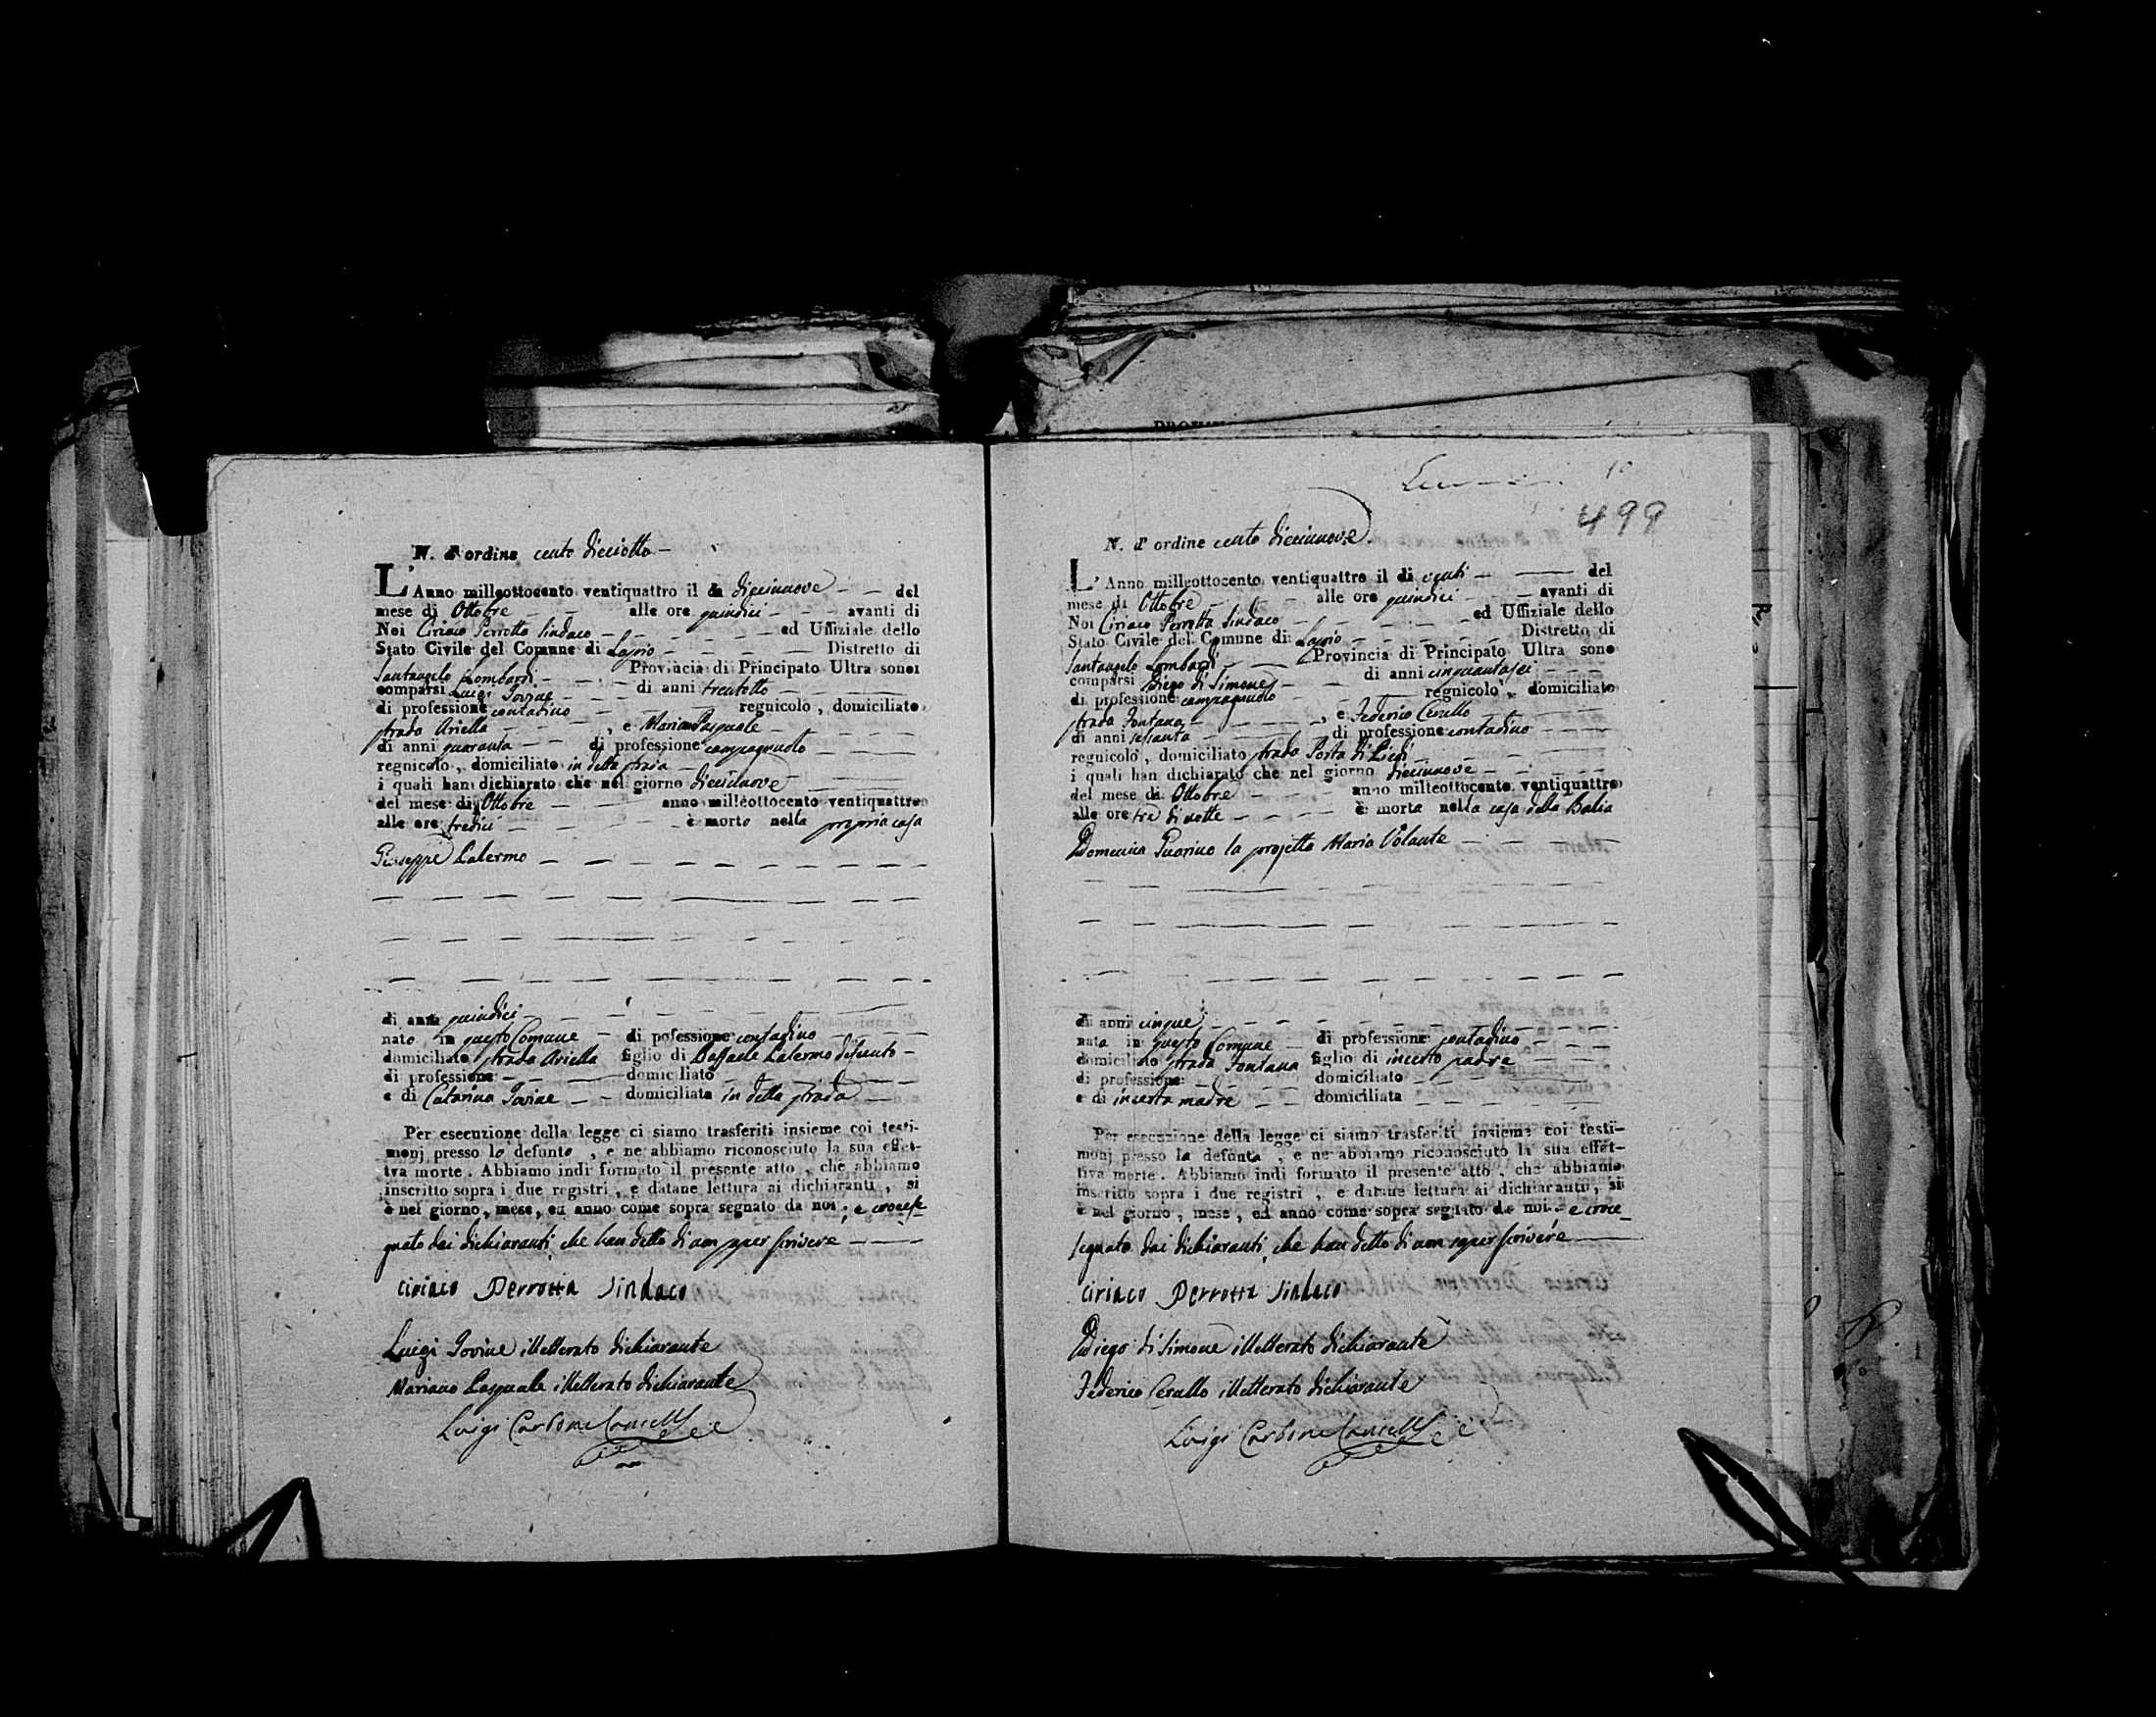 N. d'ordine cento dieciotto
L'Anno milleottocento ventiquattro il dì diecinnove del
mese di Ottobre alle ore quindici avanti di
Noi Ciriaco Perrotta Sindaco ed Uffiziale dello
Stato Civile del Comune di Lapio Distretto di
Santangelo Lombardi Provincia di Principato Ultra sono
comparsi Luigi Iovine di anni trentotto
di professione contadino regnicolo, domiciliato
strada Ariella, e Mariano Pasquale
di anni quaranta di professione campagnuolo
regnicolo, domiciliato in detta strada
i quali han dichiarato, che nel giorno diecinnove
del mese di Ottobre anno milleottocento ventiquattro
alle ore tredici è morto nella propria casa
Giuseppe Palermo
di anni quindici
nato in questo Comune di pofessione contadino
domiciliato strada Ariella figlio di Raffaele Palermo defunto
di professione domiciliato
e di Catarina Iovine domiciliata in detta strada
Per esecuzione della legge ci siamo trasferiti insieme coi testi-
monj presso lo defunto, e ne abbiamo riconosciuto la sua effet-
tva morte. Abbiamo indi formato il presente atto, che abbiamo
inscritto sopra i due registri, e datane lettura ai dichiaranti, si
è nel giorno, mese, ed anno come sopra segnato da noi; e crocese
gnato dai dichiaranti, che han detto di non saper scrivere
Ciriaco Perrotta Sindaco
Luigi Iovine illetterato dichiarante
Mariano Pasquale illetterato dichiarante
Luigi Carbone
499
N. d'ordine cento diecinnove
L'Anno milleottocento ventiquattro il di venti del
mese di Ottobre alle ore quindici avanti di
Noi Ciriaco Perrotta Sindaco ed Uffiziale dello
Stato Civile del Comune di Lapio Distretto di
Santangelo Lombardi Provincia di Principato Ultra sono
comparsi Diego di Simone di anni cinquantasei
di professione campagnuolo regnicolo, domiciliato
strada Fontana, e Federico Cerullo
di anni sessanta di professione contadino
regnicolo, domiciliato strada Porta di Piedi
i quali han dichiarato che nel giorno diecinnove
del mese di Ottobre anno milleottocento ventiquattro
alle ore tre di notte è morta nella casa della Balia
Domenica Guarino la projetta Maria Volante
di anni cinque
nata in questo Comune di professione contadino
domiciliato strada Fontana figlio di incerto padre
di professione domiciliato
e di incerta madre domiciliata
Per esecuzione della legge ci siamo trasferiti insieme coi testi-
monj presso la defonta, e ne abbiamo riconosciuto la sua effet-
tiva morte. Abbiamo indi formato il presente atto, che abbiamo
inscritto sopra i due registri, e datane lettura ai dichiaranti, si
è nel giorno, mese, ed anno come sopra segnato da noi e croce
segnato dai dichiaranti, che han detto di non saper scrivere
Ciriaco Perrotta Sindaco
Diego di Simone illetterato dichiarante
Federico Cerullo illetterato dichiarante
Luigi Carbone